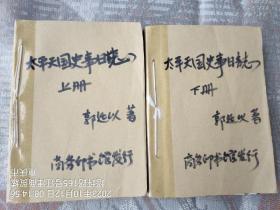 太平天国史事日志
上册
郭廷以 著
商务印书馆发行
太平天国史事日志
下册
郭廷以 著
商务印书馆发行